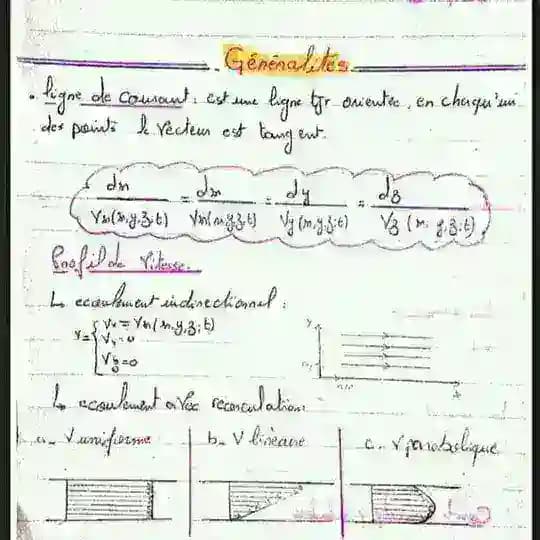 Généralités
. ligne de courant : est une ligne tjr orientée, en chaqu'un
des points le vecteur est tangent.
dx/Vx(x,y,z,t) = dx/Vx(x,y,z,t) = dy/Vy(x,y,z,t) = dz/Vz(x,y,z,t)
Profil de Vitesse.
↳ ecoulement indirectionnel :
V = { Vx = Vx(x,y,z,t)
Vy = 0
Vz = 0
y
x
↳ ecoulement avec
a - V uniforme
b - V lineaire
c - V parabolique